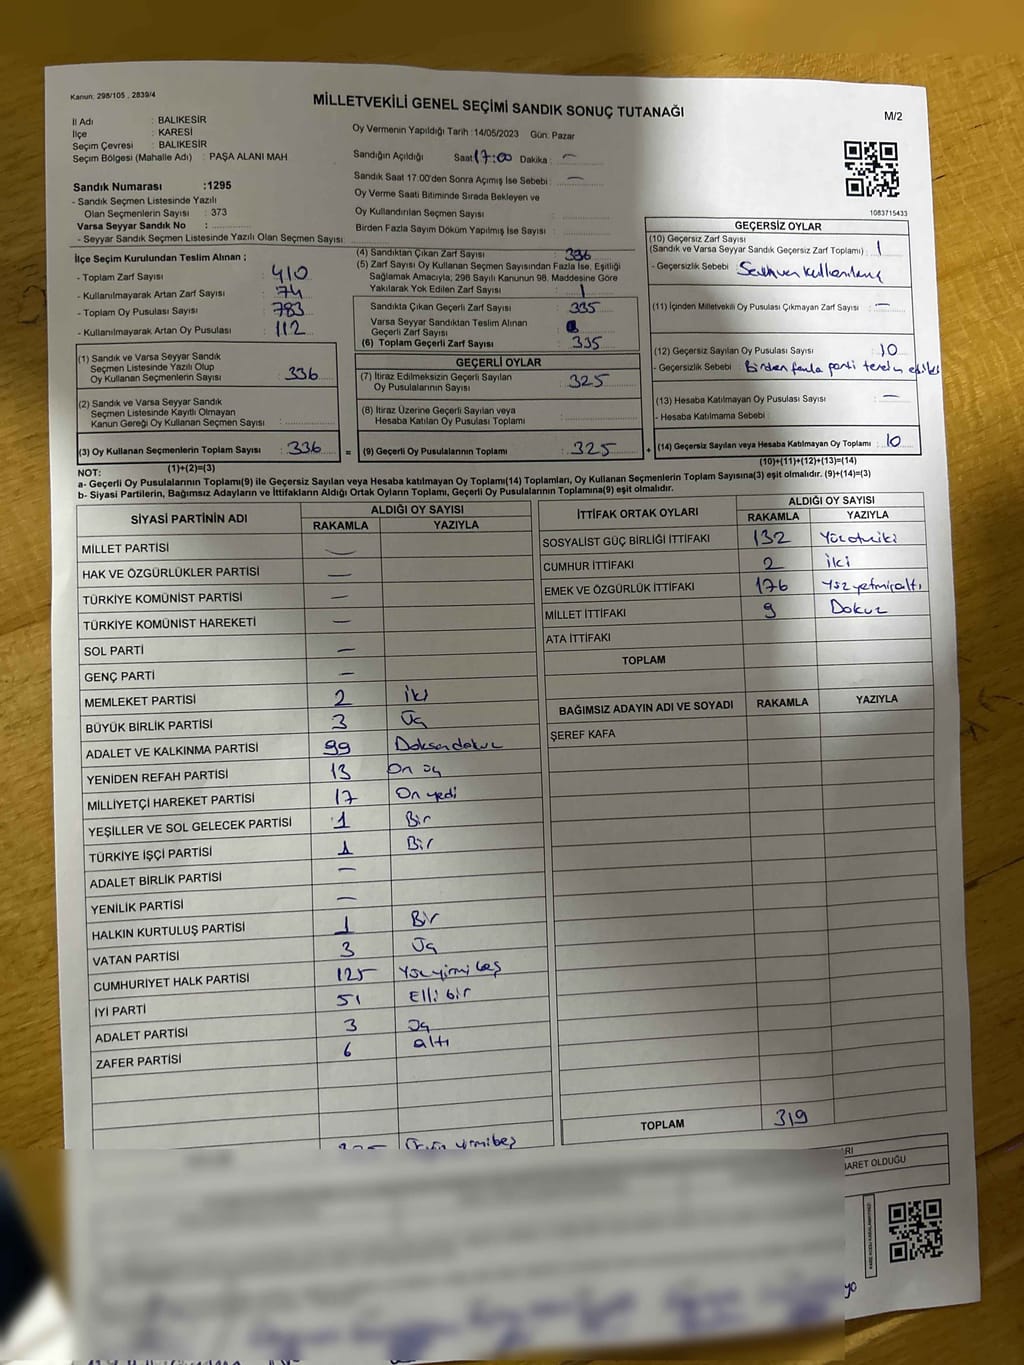 Kanun: 298/105 , 2839/4
MİLLETVEKİLİ GENEL SEÇİMİ SANDIK SONUÇ TUTANAĞI
M/2
İl Adı : BALIKESİR
İlçe : KARESİ
Seçim Çevresi : BALIKESİR
Seçim Bölgesi (Mahalle Adı) : PAŞA ALANI MAH
Sandık Numarası :1295
- Sandık Seçmen Listesinde Yazılı
Olan Seçmenlerin Sayısı : 373
Varsa Seyyar Sandık No :
- Seyyar Sandık Seçmen Listesinde Yazılı Olan Seçmen Sayısı:
Oy Vermenin Yapıldığı Tarih :14/05/2023 Gün: Pazar
Sandığın Açıldığı Saat 17:00 Dakika : –
Sandık Saat 17.00'den Sonra Açımış İse Sebebi : –
Oy Verme Saati Bitiminde Sırada Bekleyen ve
Oy Kullandırılan Seçmen Sayısı :
Birden Fazla Sayım Döküm Yapılmış İse Sayısı :
1083715433
İlçe Seçim Kurulundan Teslim Alınan ;
- Toplam Zarf Sayısı : 410
- Kullanılmayarak Artan Zarf Sayısı : 74
- Toplam Oy Pusulası Sayısı : 783
- Kullanılmayarak Artan Oy Pusulası : 112
(1) Sandık ve Varsa Seyyar Sandık
Seçmen Listesinde Yazılı Olup
Oy Kullanan Seçmenlerin Sayısı : 336
(2) Sandık ve Varsa Seyyar Sandık
Seçmen Listesinde Kayıtlı Olmayan
Kanun Gereği Oy Kullanan Seçmen Sayısı :
(3) Oy Kullanan Seçmenlerin Toplam Sayısı : 336
(1)+(2)=(3)
(4) Sandıktan Çıkan Zarf Sayısı : 336
(5) Zarf Sayısı Oy Kullanan Seçmen Sayısından Fazla İse, Eşitliği
Sağlamak Amacıyla; 298 Sayılı Kanunun 98. Maddesine Göre
Yakılarak Yok Edilen Zarf Sayısı : 1
Sandıkta Çıkan Geçerli Zarf Sayısı : 335
Varsa Seyyar Sandıktan Teslim Alınan
Geçerli Zarf Sayısı :
(6) Toplam Geçerli Zarf Sayısı : 335
GEÇERLİ OYLAR
(7) İtiraz Edilmeksizin Geçerli Sayılan
Oy Pusulalarının Sayısı : 325
(8) İtiraz Üzerine Geçerli Sayılan veya
Hesaba Katılan Oy Pusulası Toplamı :
= (9) Geçerli Oy Pusulalarının Toplamı : 325 +
GEÇERSİZ OYLAR
(10) Geçersiz Zarf Sayısı
(Sandık ve Varsa Seyyar Sandık Geçersiz Zarf Toplamı) : 1
- Geçersizlik Sebebi :
(11) İçinden Milletvekili Oy Pusulası Çıkmayan Zarf Sayısı : –
(12) Geçersiz Sayılan Oy Pusulası Sayısı : 10
- Geçersizlik Sebebi : Birden fazla parti tercih
(13) Hesaba Katılmayan Oy Pusulası Sayısı : –
- Hesaba Katılmama Sebebi :
(14) Geçersiz Sayılan veya Hesaba Katılmayan Oy Toplamı : 10
(10)+(11)+(12)+(13)=(14)
NOT:
a- Geçerli Oy Pusulalarının Toplamı(9) ile Geçersiz Sayılan veya Hesaba katılmayan Oy Toplamı(14) Toplamları, Oy Kullanan Seçmenlerin Toplam Sayısına(3) eşit olmalıdır. (9)+(14)=(3)
b- Siyasi Partilerin, Bağımsız Adayların ve İttifakların Aldığı Ortak Oyların Toplamı, Geçerli Oy Pusulalarının Toplamına(9) eşit olmalıdır.
SİYASİ PARTİNİN ADI ALDIĞI OY SAYISI
RAKAMLA YAZIYLA
MİLLET PARTİSİ –
HAK VE ÖZGÜRLÜKLER PARTİSİ –
TÜRKİYE KOMÜNİST PARTİSİ –
TÜRKİYE KOMÜNİST HAREKETİ –
SOL PARTİ –
GENÇ PARTİ –
MEMLEKET PARTİSİ 2 İki
BÜYÜK BİRLİK PARTİSİ 3 Üç
ADALET VE KALKINMA PARTİSİ 99 Doksandokuz
YENİDEN REFAH PARTİSİ 13 On üç
MİLLİYETÇİ HAREKET PARTİSİ 17 On yedi
YEŞİLLER VE SOL GELECEK PARTİSİ 1 Bir
TÜRKİYE İŞÇİ PARTİSİ 1 Bir
ADALET BİRLİK PARTİSİ –
YENİLİK PARTİSİ –
HALKIN KURTULUŞ PARTİSİ 1 Bir
VATAN PARTİSİ 3 Üç
CUMHURİYET HALK PARTİSİ 125 Yüzyirmibeş
İYİ PARTİ 51 Elli bir
ADALET PARTİSİ 3 Üç
ZAFER PARTİSİ 6 altı
İTTİFAK ORTAK OYLARI ALDIĞI OY SAYISI
RAKAMLA YAZIYLA
SOSYALİST GÜÇ BİRLİĞİ İTTİFAKI 132 Yüzotuziki
CUMHUR İTTİFAKI 2 İki
EMEK VE ÖZGÜRLÜK İTTİFAKI 176 Yüzyetmişaltı
MİLLET İTTİFAKI 9 Dokuz
ATA İTTİFAKI
TOPLAM
BAĞIMSIZ ADAYIN ADI VE SOYADI RAKAMLA YAZIYLA
ŞEREF KAFA
TOPLAM 319
ARET OLDUĞU